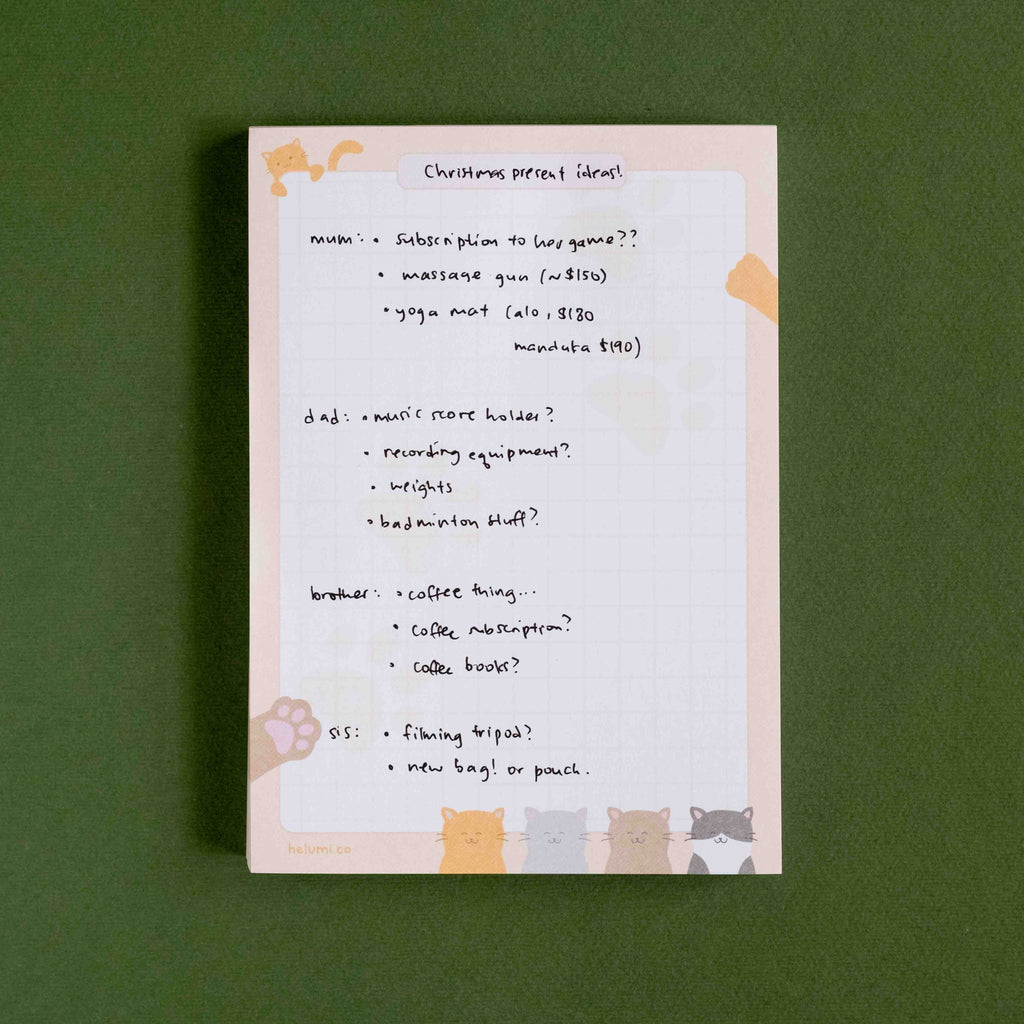 Christmas present ideas!
mum: • subscription to her game??
• massage gun (~$150)
• yoga mat (alo, $180
manduka $190)
dad: • music score holder?
• recording equipment?
• weights
• badminton stuff?
brother: • coffee thing...
• coffee subscription?
• coffee books?
sis: • filming tripod?
• new bag! or pouch.
helumi.co